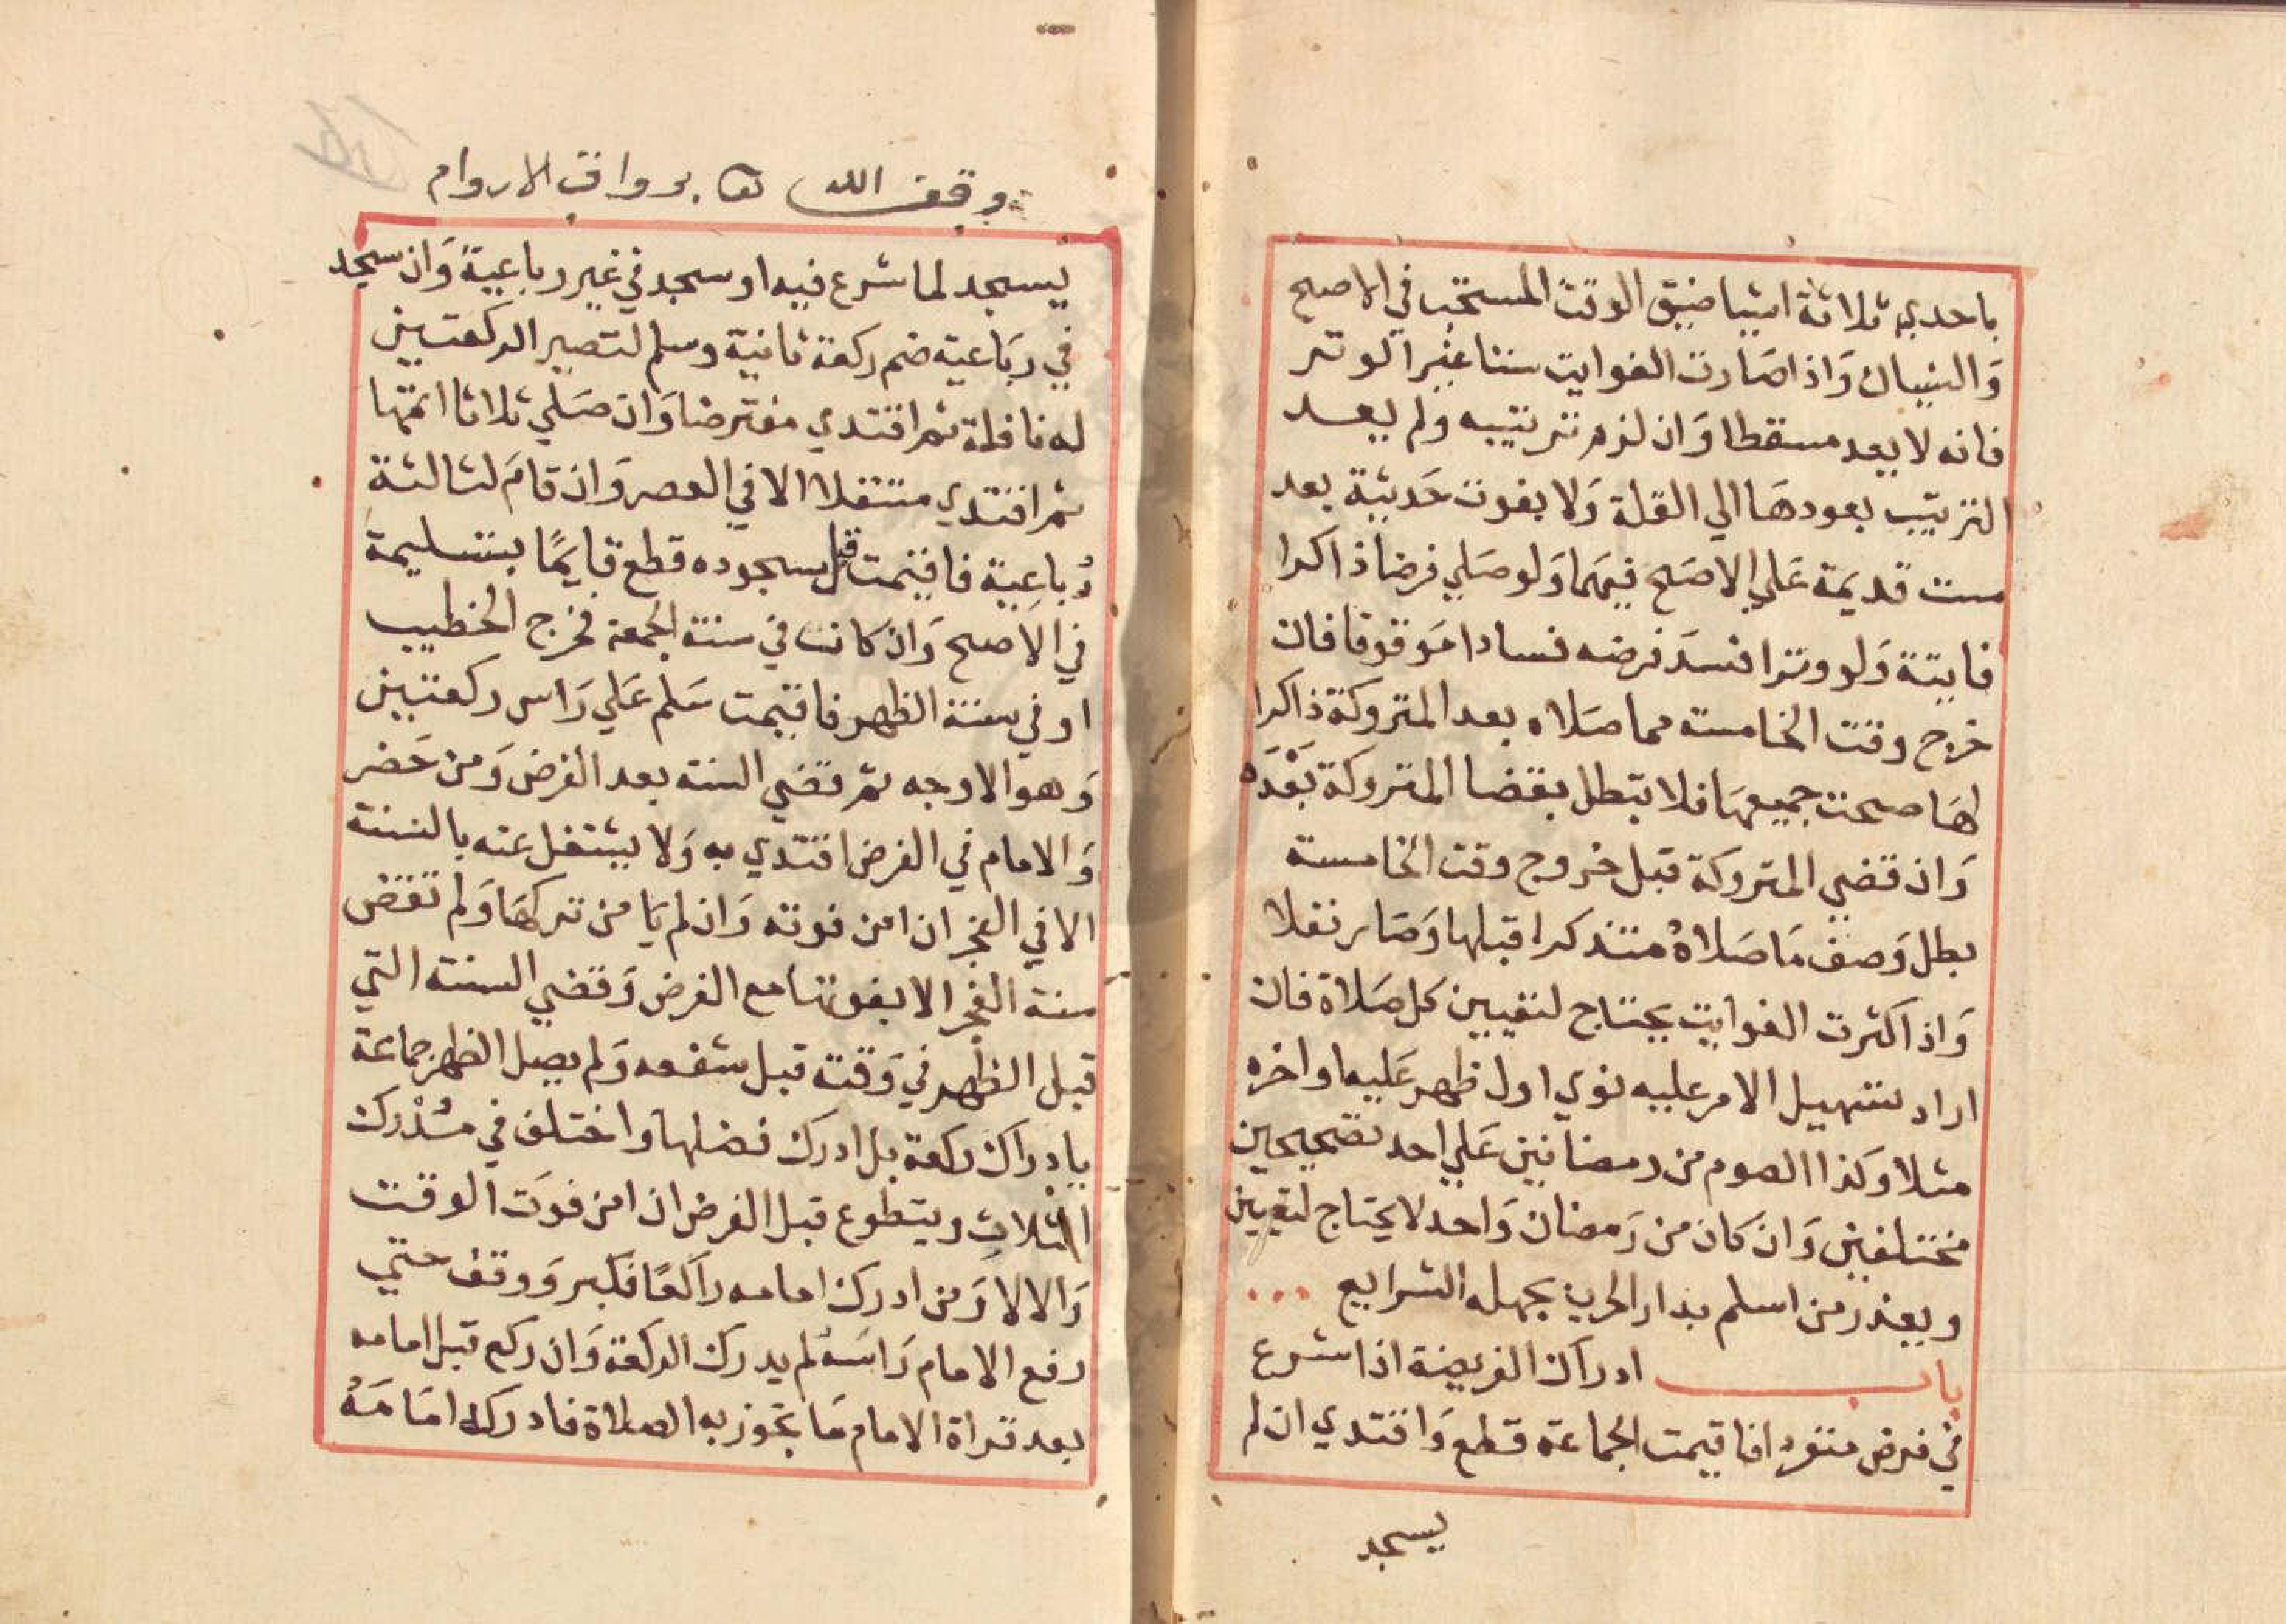 باحدي ثلاثة اشيا ضيق الوقت المستحب في الاصح
وَالنسيان وَاذا صَارت الفوايت ستا غير الوتر
فانه لا يعد مسقطا وَان لزم ترتيبه ولم يعد
الترتيب بعودهَا الي القلة وَلا بفوت حَديثة بعد
ست قديمة عَلي الاصَح فيهما وَلو صَلي فرضا ذاكرا
فايتة وَلو وترا فسَد فرضه فسادا مَوقوفا فان
خرج وقت الخامسة مما صَلاه بعد المتروكة ذاكرا
لهَا صحت جميعهَا فلا تبطل بقضا المتروكة بَعْدَه
وَان قضي المتروكة قبل خروج وقت الخامسة
بطل وَصف مَا صَلاهُ متذكرا قبلها وَصَار نفلا
وَاذا كثرت الفوايت يحتاج لتعيين كل صَلاة فان
اراد تسهيل الامر عليه نوي اول ظهر عَليه او اخره
مثلا وكذا الصوم من رمضانين عَلي احد تصحيحين
مختلفين وَان كان من رَمضان وَاحد لا يحتاج لتعيين
ويعذر من اسلم بدار الحرب بجهله الشرايع
باب ادراك الفريضة اذا شرع
في فرض منفردا فاقيمت الجماعة قطع وَاقتدي ان لم
يسجد
وقف الله تعا برواق الاروام
يسجد لما شرع فيه او سجد في غير رباعية وَان سجد
في ربَاعية ضم ركعة ثانية وسلم لتصير الركعتين
له نافلة ثم اقتدي مفترضا وَان صَلي ثلاثا اتمّها
ثم اقتدي متنفلا الا في العصر وَان قامَ لثالثة
رُباعِية فاقيمت قبل سجوده قطع قايمًا بتسليمة
في الاصح وَان كانت في سنة الجمعة فخرج الخطيب
او في سنة الظهر فاقيمت سَلم عَلي رَاس ركعتين
وَهو الاوجه ثم قضي السنة بعد الفرض وَمن حَضر
وَالامام في الفرض اقتدي به وَلا يشتغل عنه بالسنة
الا في الفجر ان امن فوته وَان لم يَامن تركهَا وَلم تقض
سنة الفجر الا بفوتها مع الفرض وَقضي السنة التي
قبل الظهر في وَقته قبل شفعه وَلم يصل الظهر جماعة
بادراك ركعة بل ادرك فضلها واختلف في مُدْرك
الثلاث ويتطوع قبل الفرض ان امن فوَت الوقت
وَالا لا وَمن ادرك امامه راكعًا فكبر وَوقف حتي
رفع الامام رَاسَهُ لم يدرك الركعة وَان ركع قبل امامه
بعد قراة الامام مَا تجوز به الصلاة فادركه امَامَهُ